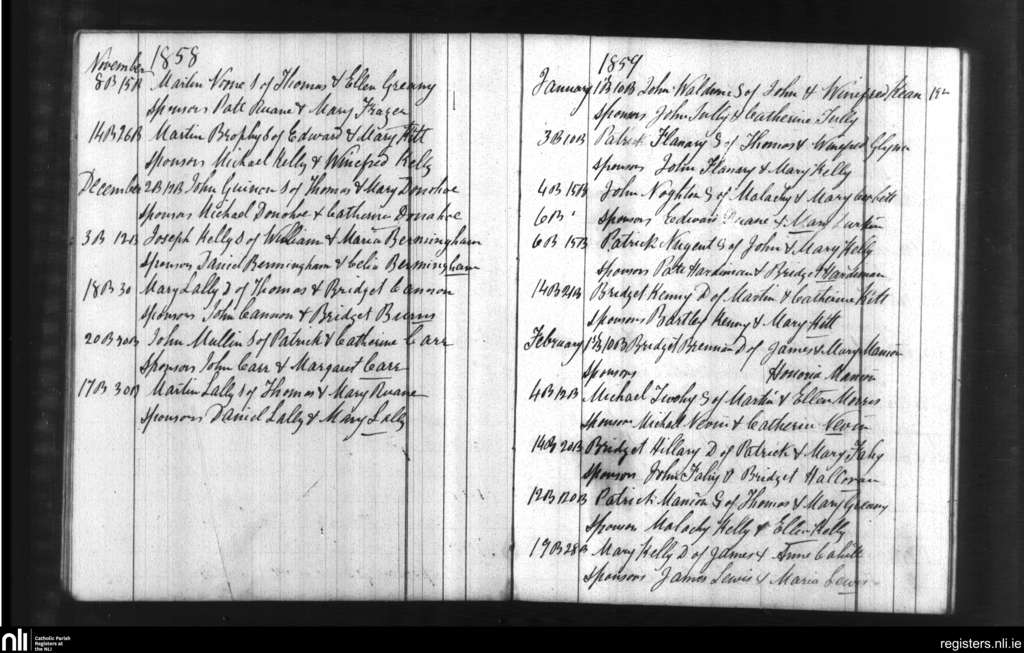 November 1858
8B 15B Martin Noone S of Thomas & Ellen Greany
Sponsors Patt Ruane & Mary Frazer
14B 26B Martin Brophy S of Edward & Mary Kitt
Sponsors Michael Kelly & Winefred Kelly
December 2B 12B John Guinon S of Thomas & Mary Donohoe
Sponsors Michael Donohoe & Catherine Donahoe
3B 12B Joseph Kelly S of William & Maria Bermingham
Sponsors Daniel Bermingham & Celia Bermingham
18B 30 Mary Lally D of Thomas & Bridget Cannon
Sponsors John Cannon & Bridget Burns
20B 30B John Mullin S of Patrick & Catherine Carr
Sponsors John Carr & Margaret Carr
17B 30B Martin Lally S of Thomas & Mary Ruane
Sponsors Daniel Lally & Mary Lally
1859
January 1B 10B John Waldron S of John & Winefred Kean
Sponsors John Tully & Catherine Tully
3B 10B Patrick Flanary S of Thomas & Winefred Glynn
Sponsors John Flanary & Mary Kelly
4B 15B John Noghten S of Malachy & Mary Corbett
6B Sponsors Edward & Mary Durkan
6B 15B Patrick Nugent S of John & Mary Kelly
Sponsors Patt Hardiman & Bridget Hardiman
14B 21B Bridget Kenny D of Martin & Catherine Kitt
Sponsors Bartley Kenny & Mary Kitt
February 1B 10B Bridget Brennan D of James & Mary Manion
Sponsors Honoria Manion
4B 12B Michael S of Martin & Ellen Morris
Sponsors Michael Nevin & Catherine Nevin
14B 20B Bridget Hillary D of Patrick & Mary Fahy
Sponsors John Fahy & Bridget Halloran
12B 20B Patrick Manion S of Thomas & Mary Greany
Sponsors Malachy Kelly & Ellen Kelly
19B 28B Mary Kelly D of James & Anne Cahill
Sponsors James Lewis & Maria Lewis
nli Catholic Parish
Registers at
the NLI
registers.nli.ie